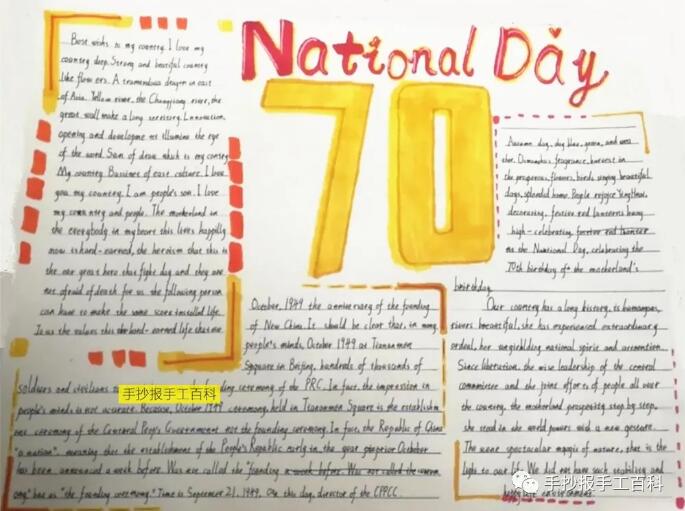 National Day
70
Best wishs to my country. I love my
country deep. Strong and beatiful country
like flowers. A tremendous dragon in east
of Asia. Yellow river, the Changjiang river, the
great wall make a long territory. Innovation,
opening and developme nt illumine the eye
of the word. Son of
My country. Bussines of east culture. I love
you my country. I am people's son. I love
my country and people. The motherland in
the everybody in my heart this lives happily
now is hard-earned, the heroism that this is
the one great hero that fight day and they are
not afraid of death for us the following person
can have to make the some
Autumn day, sky blue, green, and
fragrance, harvest in
the prosperous, flowers, birds singing, beautiful
days, splendid home. People rejoice
decorating, festive red lanterns hang
high-celebrating
the National Day, celebrating the
70th birthday of the motherland's
breirthday
October, 1949 the anniversary of the founding
of New China. It should be clear that, in many
people's minds, October 1949 at Tiananmen
Sqquare in Beijing, hundreds of thousands of
soldiers and civilians
手抄报手工百科
ceremony of the PRC. In face, the impression in
people's minds is not accurate. Because, October 1949 ceremony, held in Tiananmen Square is the establish
ment ceremony of the Centeral Peop's Government not the founding ceremony. In face, the Republic of China
"a nation", meaning that the establishment of the People's Republic early in the year
has been announced a week before. Was
"the founding ceremony." Time is Sepember 21, 1949. On this day, director of the CPPCC.
Our country has a long history, is humongous,
rivers beeautiful, she has experienced extraordinary
ordeal, her unyielding national spirit and
Since liberation, the wise leadership of the central
committee and the joint efforts of people all over
the country, the motherland prosperity step by step,
she stand in the world powers with a new gesture.
The some spectacular magic of nature, that is the
light to our life. We did not have such stability and
手抄报手工百科